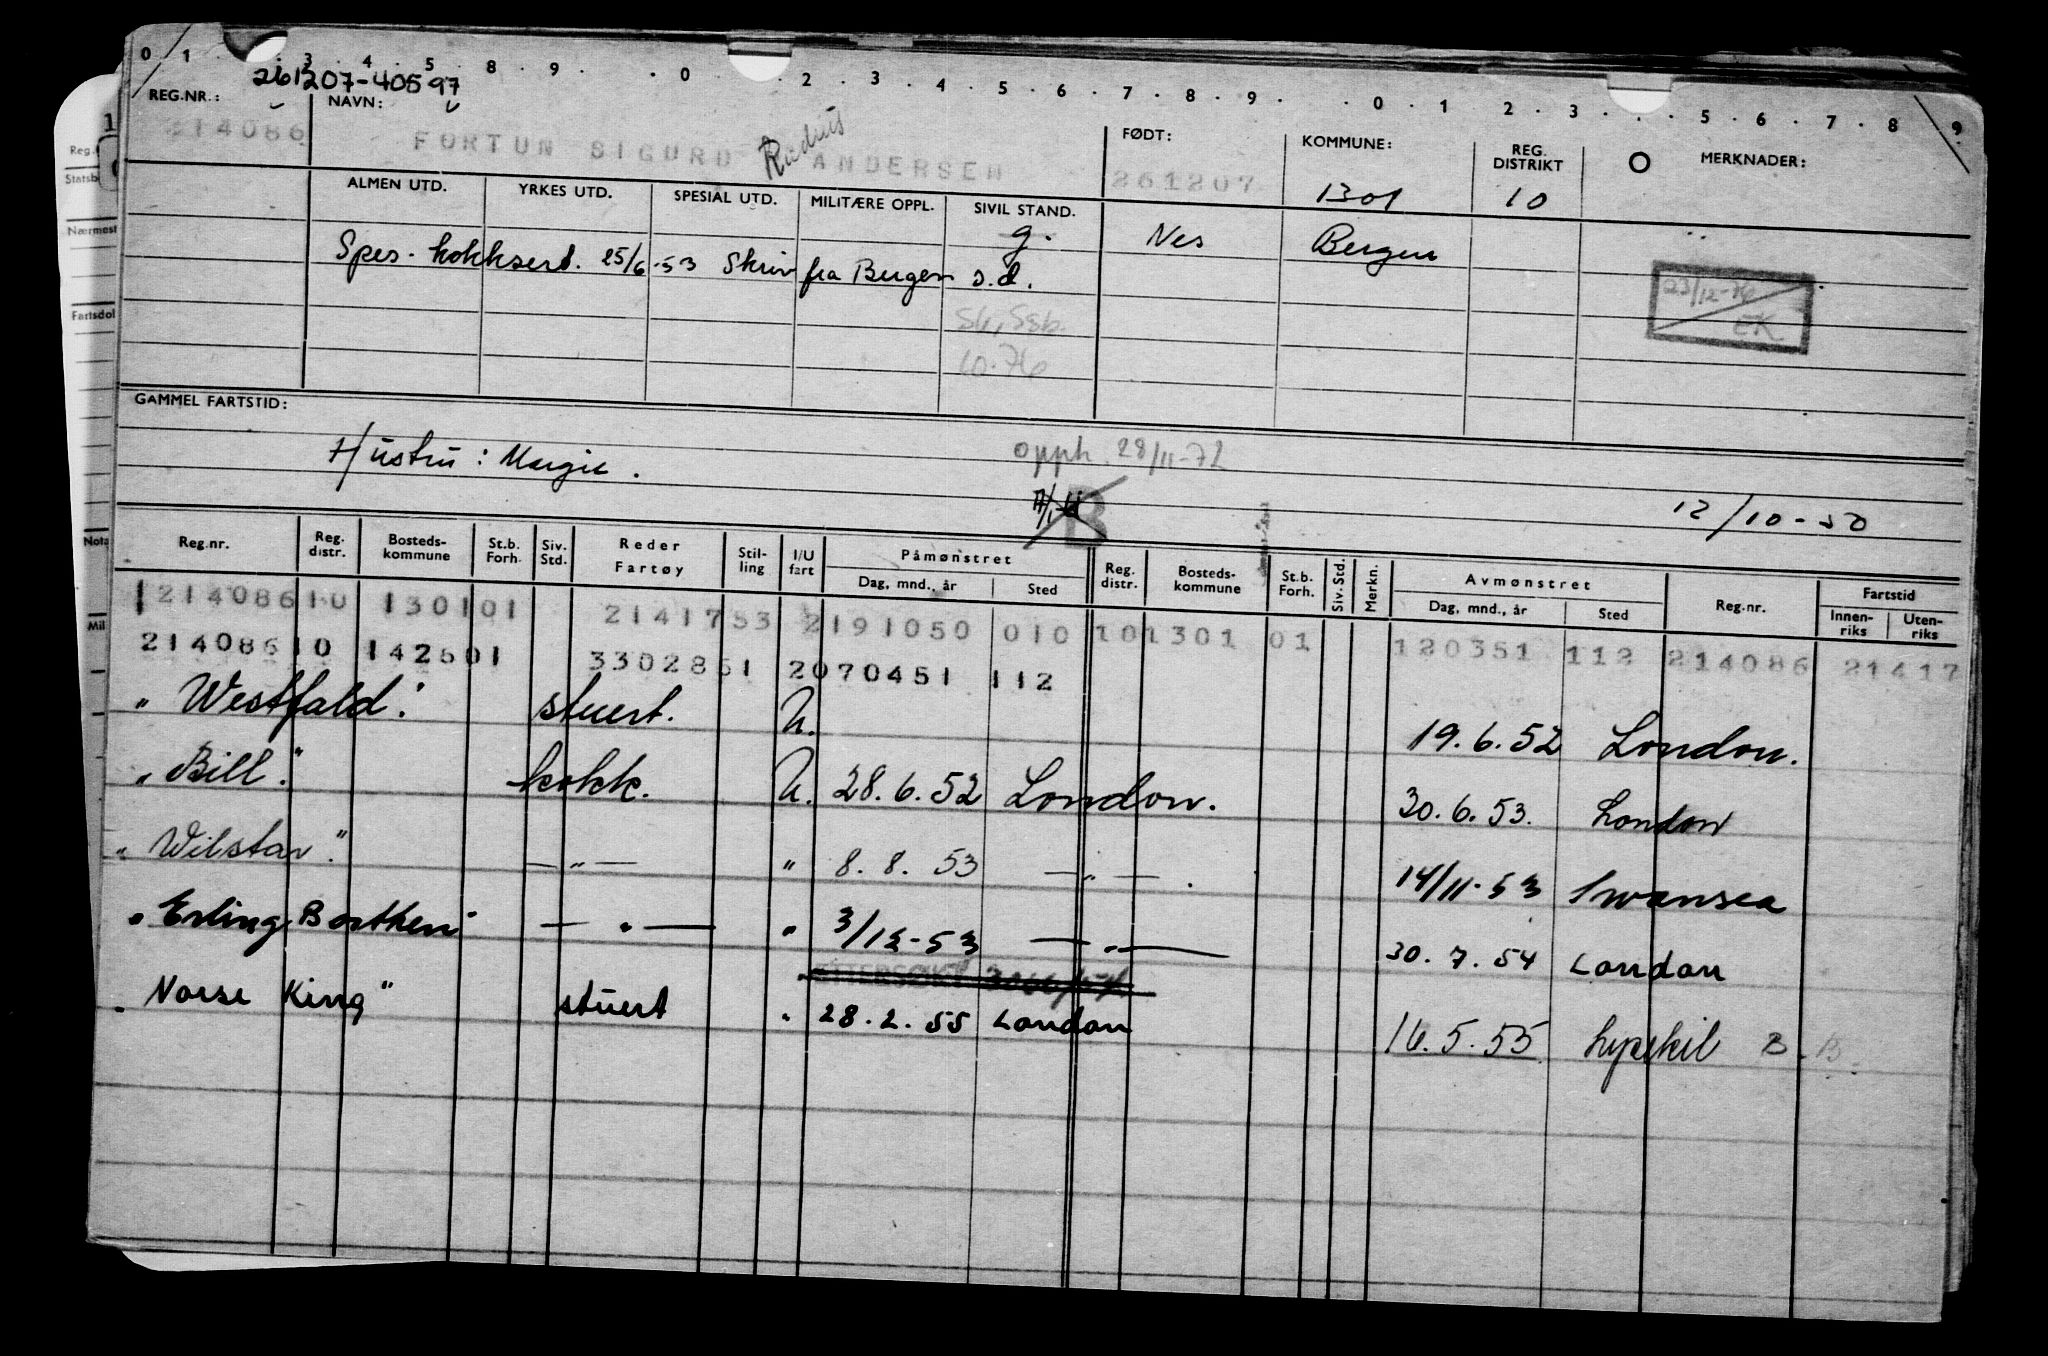 0 1 3 4 5 8 9 0 2 3 4 5 6 7 8 9 0 1 2 3 5 6 7 8 9
261207-40597
REG.NR.: NAVN: FØDT: KOMMUNE: REG. DISTRIKT O MERKNADER:
214086 FORTUN SIGURD ANDERSEN 261207 1301 10
ALMEN UTD. YRKES UTD. SPESIAL UTD. MILITÆRE OPPL. SIVIL STAND.
g. Nes Bergen
Spes. kokksert. 25/6-53 Skriv fra Bergen s.d.
23/12-76
EK
10.76
GAMMEL FARTSTID:
Hustru: Margie. opph. 28/11-72
B
12/10-50
Reg.nr. Reg. distr. Bosteds-kommune St.b. Forh. Siv. Std. Reder Fartøy Stil-ling I/U fart Påmønstret Dag, mnd., år Sted Reg. distr. Bosteds-kommune St.b. Forh. Siv. Std. Merkn. Avmønstret Dag, mnd., år Sted Reg.nr. Fartstid Innen-riks Uten-riks
121408610 130101 2141753 2191050 010 101301 01 120351 112 214086 21417
21408610 142601 3302861 2070451 112
"Westfald". stuert. U. 19.6.52 London.
"Bill". kokk. U. 28.6.52 London. 30.6.53. London
"Wilstar". —"— " 8.8.53 —"—. 14/11-53 Swansea
"Erling Borthen" —"— " 3/12-53 —"— 30.7.54 London
"Norse King" stuert " 28.2.55 London 16.5.55 Lysekil B.B.